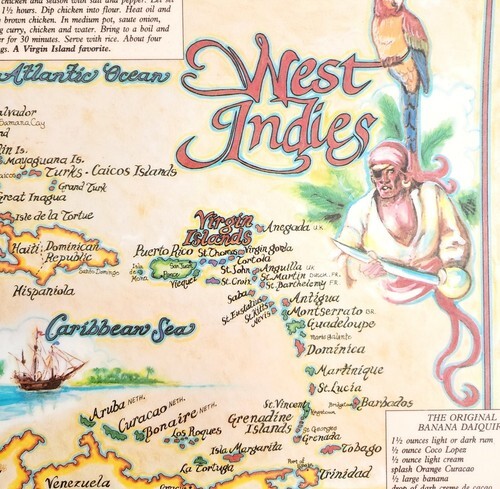 chicken and season with salt and pepper. Let set
1½ hours. Dip chicken into flour. Heat oil and
brown chicken. In medium pot, saute onion,
curry, chicken and water. Bring to a boil and
for 30 minutes. Serve with rice. About four
A Virgin Island favorite.
Atlantic Ocean
West
Indies
Samana Cay
Mayaguana Is.
Turks - Caicos Islands
Grand Turk
Great Inagua
Isle de la Tortue
Haiti
Dominican
Republic
Santo Domingo
Hispaniola
Virgin
Islands
Anegada U.K.
Puerto Rico
San Juan
Ponce
Vieques
Isla de
Mona
St. Thomas
Virgin Gorda
Tortola
St. John
St. Croix
Anguilla U.K.
St. Martin DUTCH, FR.
St. Barthelemy FR
Saba
St. Eustatius
St. Kitts
Nevis
Antigua
Montserrat BR.
Guadeloupe
Marie Galante
Dominica
Martinique
St. Lucia
Bridgetown
Barbados
St. Vincent
Kingstown
Grenadine
Islands
St. Georges
Grenada
Tobago
Trinidad
Caribbean Sea
Aruba NETH.
Curacao NETH.
Bonaire NETH.
Los Roques
Isla Margarita
La Tortuga
Venezuela
THE ORIGINAL
BANANA DAIQUIR
1½ ounces light or dark rum
½ ounce Coco Lopez
½ ounce light cream
splash Orange Curacao
½ large banana
drop of dark creme de cacao